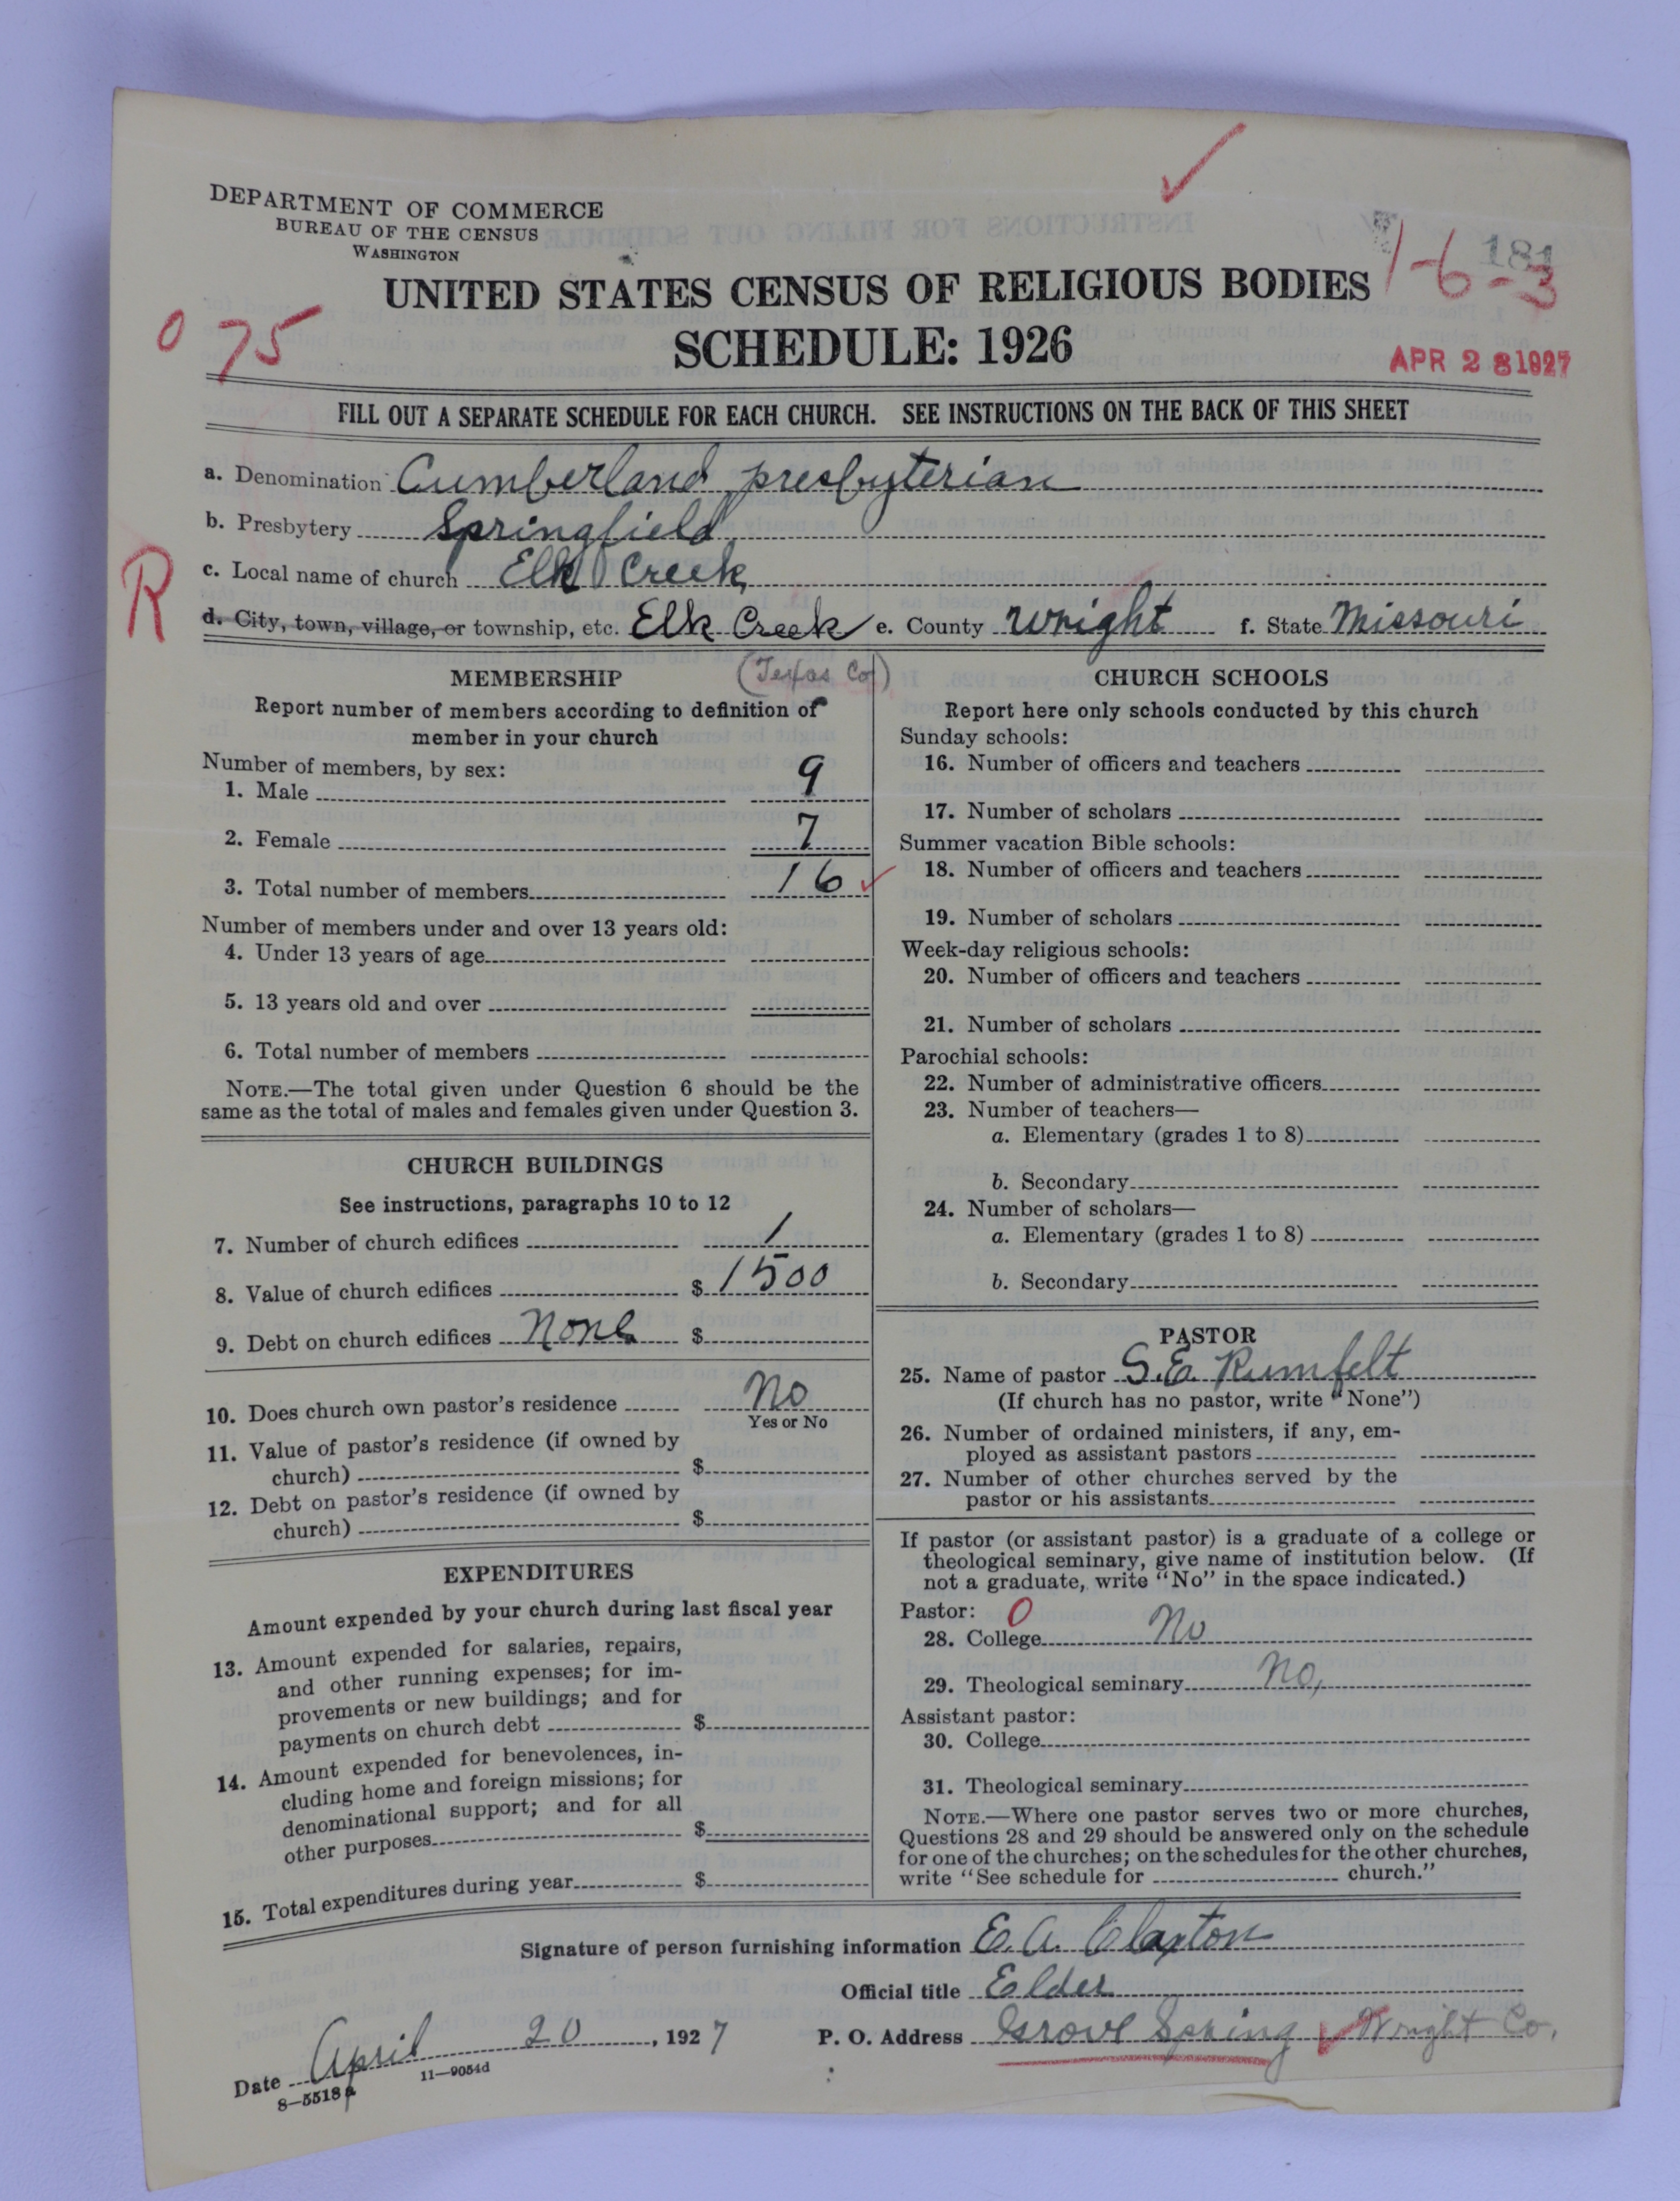 DEPARTMENT OF COMMERCE
BUREAU OF THE CENSUS
WASHINGTON
UNITED STATES CENSUS OF RELIGIOUS BODIES
1-6-3
181
0 75
SCHEDULE: 1926
APR 28 1927
FILL OUT A SEPARATE SCHEDULE FOR EACH CHURCH. SEE INSTRUCTIONS ON THE BACK OF THIS SHEET
a. Denomination Cumberland presbyterian
b. Presbytery Springfield
c. Local name of church Elk Creek
R
d. City, town, village, or township, etc. Elk Creek e. County Wright f. State Missouri
(Texas Co)
MEMBERSHIP
Report number of members according to definition of
member in your church
Number of members, by sex:
1. Male 9
2. Female 7
3. Total number of members 16
Number of members under and over 13 years old:
4. Under 13 years of age
5. 13 years old and over
6. Total number of members
NOTE.—The total given under Question 6 should be the
same as the total of males and females given under Question 3.
CHURCH BUILDINGS
See instructions, paragraphs 10 to 12
7. Number of church edifices 1
8. Value of church edifices $1500
9. Debt on church edifices None $
10. Does church own pastor's residence No
Yes or No
11. Value of pastor's residence (if owned by
church) $
12. Debt on pastor's residence (if owned by
church) $
EXPENDITURES
Amount expended by your church during last fiscal year
13. Amount expended for salaries, repairs,
and other running expenses; for im-
provements or new buildings; and for
payments on church debt $
14. Amount expended for benevolences, in-
cluding home and foreign missions; for
denominational support; and for all
other purposes $
15. Total expenditures during year $
CHURCH SCHOOLS
Report here only schools conducted by this church
Sunday schools:
16. Number of officers and teachers
17. Number of scholars
Summer vacation Bible schools:
18. Number of officers and teachers
19. Number of scholars
Week-day religious schools:
20. Number of officers and teachers
21. Number of scholars
Parochial schools:
22. Number of administrative officers
23. Number of teachers—
a. Elementary (grades 1 to 8)
b. Secondary
24. Number of scholars—
a. Elementary (grades 1 to 8)
b. Secondary
PASTOR
25. Name of pastor S.E. Rumfelt
(If church has no pastor, write "None")
26. Number of ordained ministers, if any, em-
ployed as assistant pastors
27. Number of other churches served by the
pastor or his assistants
If pastor (or assistant pastor) is a graduate of a college or
theological seminary, give name of institution below. (If
not a graduate, write "No" in the space indicated.)
Pastor: 0
28. College No
29. Theological seminary No,
Assistant pastor:
30. College
31. Theological seminary
NOTE.—Where one pastor serves two or more churches,
Questions 28 and 29 should be answered only on the schedule
for one of the churches; on the schedules for the other churches,
write "See schedule for church."
Signature of person furnishing information E. A. Claxton
Official title Elder
Date April 20, 1927 P. O. Address Grove Spring Wright Co.
8—5518a 11—9054d